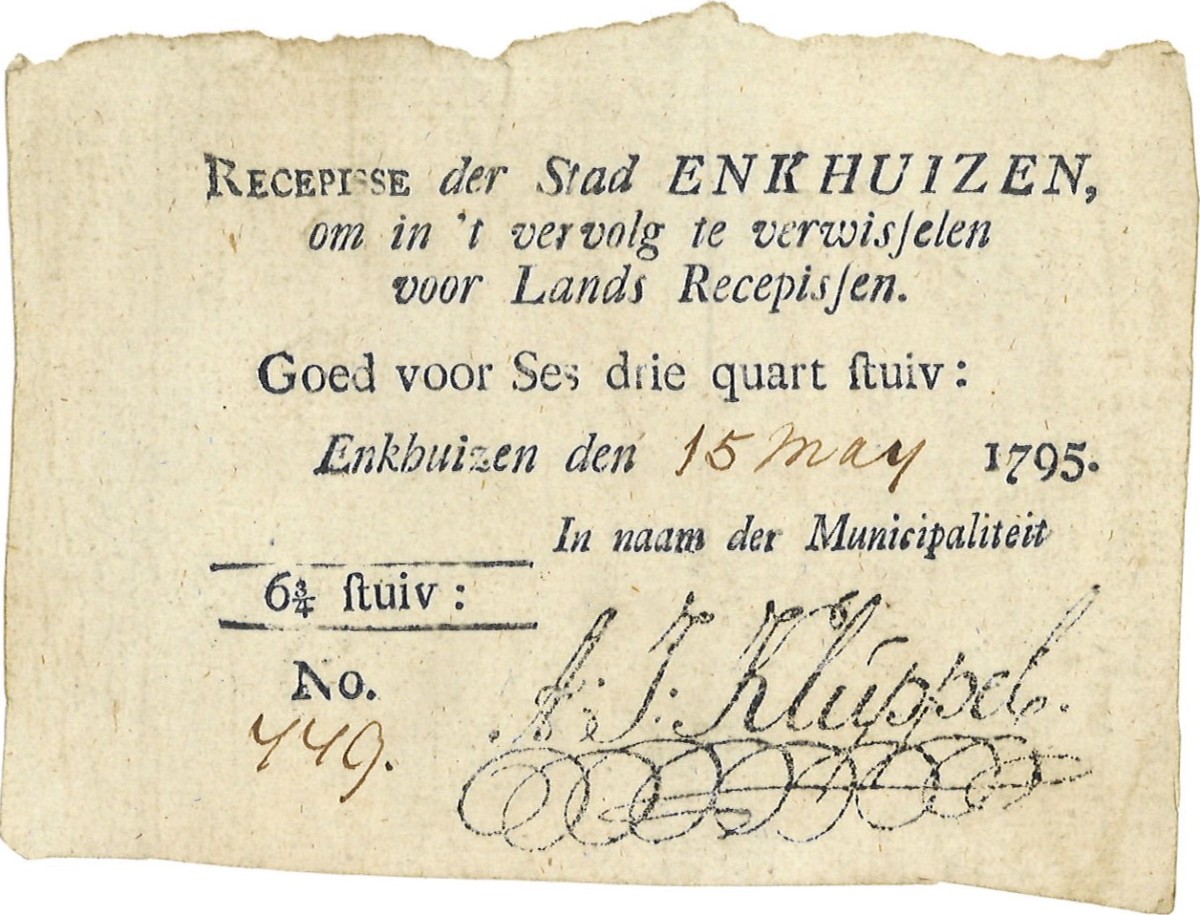 RECEPISSE der Stad ENKHUIZEN,
om in 't vervolg te verwisſelen
voor Lands Recepisſen.
Goed voor Ses drie quart ſtuiv:
Enkhuizen den 15 May 1795.
In naam der Municipaliteit
6¾ ſtuiv:
No.
449.
A: J: Kluppel.